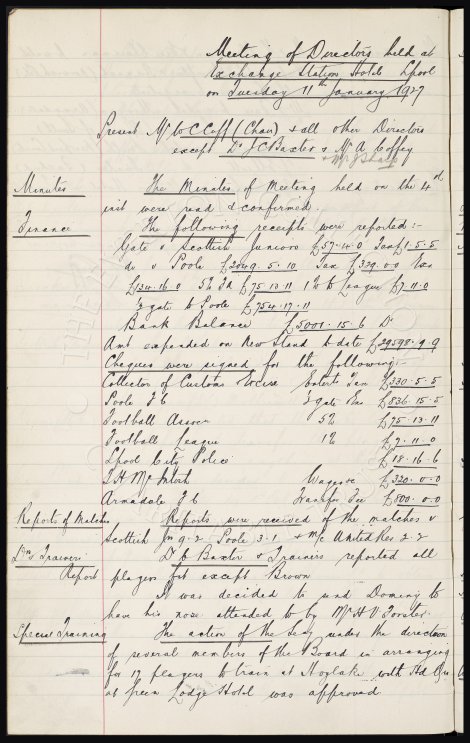 Meeting of Directors held at
Exchange Station Hotel Lpool
on Tuesday 11th January 1927
Present Mr W C Cuff (Chair) & all other Directors
except Dr J C Baxter & Mr A Coffey
& Mr J Sharp
Minutes The Minutes of Meeting held on the 4th
inst were read & confirmed.
Finance The following receipts were reported:-
Gate v Scottish Juniors £57.4.0 Tax £1.5.5
do v Poole £2049.5.10 Tax £329.00
£134.16.0 5% FA £75.13.11 1% to League £7.11.0
½ gate to Poole £754.17.11
Bank Balance £5001.15.6 Dr
Amt expended on New Stand to date £29598.9.9
Cheques were signed for the following:-
Collector of Customs & Excise Entert Tax £330.5.5
Poole FC ½ gate £836.15.5
Football Assocn 5% £75.13.11
Football League 1% £7.11.0
Lpool City Police £18.16.6
T H McIntosh Wages &c £320.0.0
Armadale FC Transfer Fee £500.0.0
Reports of Matches Reports were received of the matches v
Scottish Jrs 9-2 Poole 3-1 & M/c United Res 2-2
Drs & Trainers' Dr Baxter & Trainers reported all
Report players fit except Brown
It was decided to send Dominy to
have his nose attended to by Mr H V
Special Training The action of the Secy under the direction
of several members of the Board in arranging
for 17 players to train at Hoylake with Hd Qrs
at Green Lodge Hotel was approved